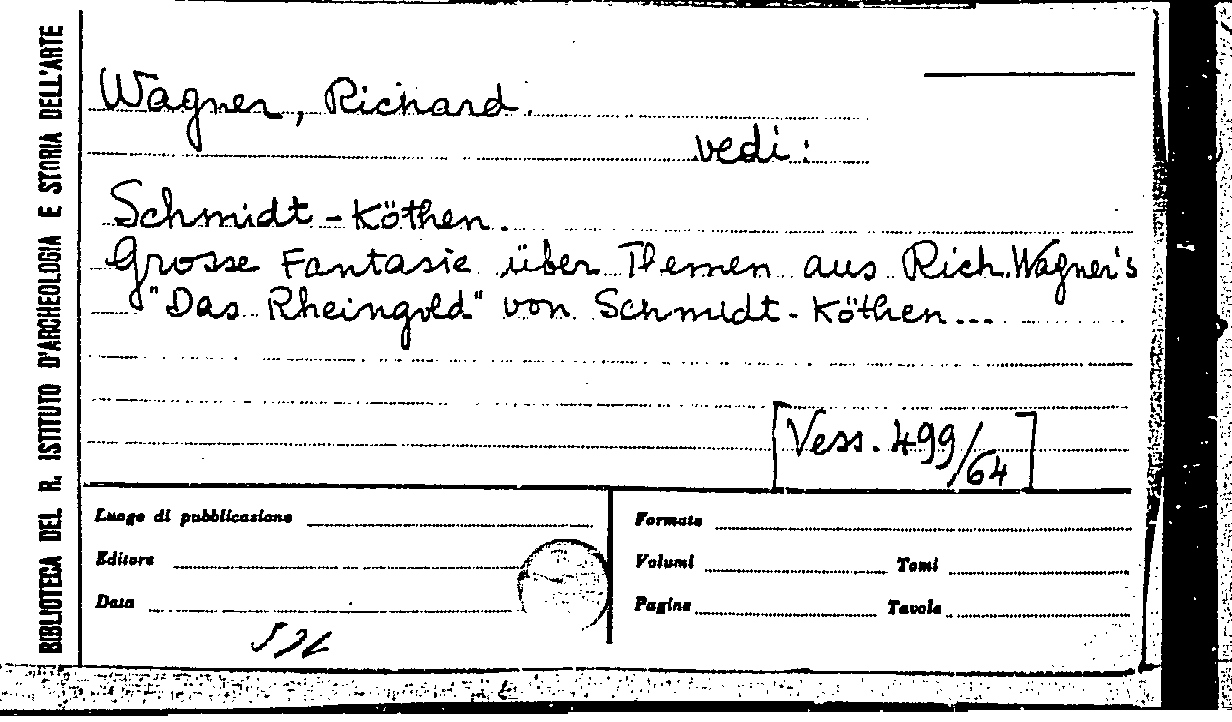 BIBLIOTECA DEL R. ISTITUTO D'ARCHEOLOGIA E STORIA DELL'ARTE
Wagner, Richard.
vedi:
Schmidt-Köthen.
Grosse Fantasie über Themen aus Rich. Wagner's
"Das Rheingold" von Schmidt-Köthen...
[Vess. 499/64]
Luogo di pubblicazione
Editore
Data
Formato
Volumi Tomi
Pagine Tavole